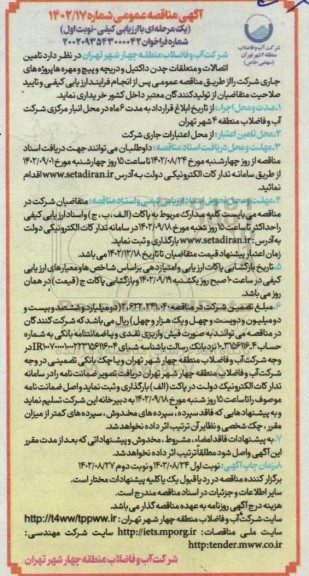 آگهی مناقصه عمومی شماره ۱۴۰۲/۱۷
(یک مرحله ای با ارزیابی کیفی-نوبت اول)
شماره فراخوان ۲۰۰۲۰۹۳۵۴۳۰۰۰۰۴۲
شرکت آب و فاضلاب
منطقه ۴ شهر تهران
(سهامی خاص)
شرکت آب و فاضلاب منطقه چهار شهر تهران در نظر دارد تامین
اتصالات و متعلقات چدن داکتیل و دریچه و پیچ و مهره ها پروژه های
جاری شرکت را از طریق مناقصه عمومی پس از انجام فرایند ارزیابی کیفی و تایید
صلاحیت متقاضیان از تولیدکنندگان معتبر داخل کشور خریداری نماید.
۱.مدت و محل اجرا: از تاریخ ابلاغ قرارداد به مدت ۶ ماه در محل انبار مرکزی شرکت
آب و فاضلاب منطقه ۴ شهر تهران
۲.محل تامین اعتبار: از محل اعتبارات جاری شرکت
۳.مهلت و محل دریافت اسناد مناقصه: داوطلبان می توانند جهت دریافت اسناد
مناقصه از روز چهارشنبه مورخ ۱۴۰۲/۰۸/۲۴ تا ساعت ۱۵ روز چهارشنبه مورخ ۱۴۰۲/۰۹/۰۱
از طریق سامانه تدارکات الکترونیکی دولت به آدرس www.setadiran.ir اقدام
نمائید.
۴.مهلت و محل تحویل اسناد ارزیابی کیفی و اسناد مناقصه: متقاضیان شرکت در
مناقصه می بایست کلیه مدارک مربوط به پاکات (الف، ب، ج) و اسناد ارزیابی کیفی
را حداکثر تا ساعت ۱۵ روز شنبه مورخ ۱۴۰۲/۰۹/۱۸ در سامانه تدارکات الکترونیکی دولت
به آدرس: www.setadiran.ir بارگذاری و ثبت نماید.
زمان اعتبار پیشنهاد قیمت متقاضیان تا تاریخ ۱۴۰۲/۱۲/۱۸ می باشد.
۵.تاریخ بازگشایی پاکات ارزیابی و امتیازدهی بر اساس شاخص ها و معیارهای ارزیابی
کیفی در ساعت ۱۰ صبح روز یکشنبه ۱۴۰۲/۰۹/۱۹ و بازگشایی پاکات ج (قیمت) در همان
روز می باشد.
۶.مبلغ تضمین شرکت در مناقصه: ۲،۶۲۲،۲۴۱،۰۴۰ (دو میلیارد و ششصد و بیست و
دو میلیون و دویست و چهل و یک هزار و چهل) ریال می باشد که شرکت کنندگان
در مناقصه می توانند به صورت فیش واریزی نقدی و یا ضمانتنامه بانکی به شماره
وجه شرکت آب و فاضلاب منطقه چهار شهر تهران و یا چک بانکی تضمینی در وجه
شرکت آب و فاضلاب منطقه چهار شهر تهران دریافت تصویر ضمانت نامه را در سامانه
تدارکات الکترونیک دولت در پاکت (الف) بارگذاری و ثبت نماید و اصل ضمانت نامه
موصوف را تا ساعت ۱۵ روز شنبه مورخ ۱۴۰۲/۰۹/۱۸ به دبیرخانه این شرکت تسلیم نماید
و به پیشنهادهایی که فاقد سپرده، سپرده های مخدوش، سپرده های کمتر از میزان
مقرر، چک شخصی و نظایر آن ترتیب اثر داده نخواهد شد.
۷.به پیشنهادات فاقد امضاء، مشروط، مخدوش و پیشنهاداتی که بعد از مدت مقرر
این آگهی واصل شود مطلقاً ترتیب اثر داده نخواهد شد.
۸.زمان چاپ آگهی: نوبت اول ۱۴۰۲/۰۸/۲۳ و نوبت دوم ۱۴۰۲/۰۸/۲۷
برگزار کننده مناقصه در رد یا قبول یک یا کلیه پیشنهادات مختار است.
سایر اطلاعات و جزئیات در اسناد مناقصه مندرج است.
هزینه درج آگهی روزنامه به عهده مناقصه گذار می باشد.
سایت شرکت آب و فاضلاب منطقه چهار شهر تهران: http://t4ww/tppww.ir
سایت ملی مناقصات: http://iets.mporg.ir سایت شرکت مهندسی:
http:tender.mww.co.ir
شرکت آب و فاضلاب منطقه چهار شهر تهران